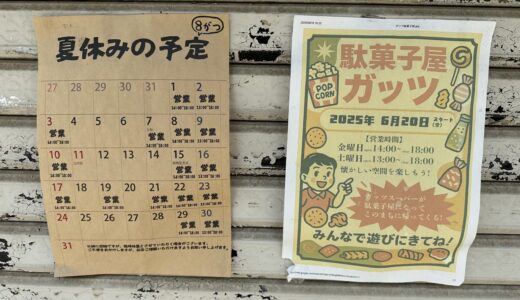 8がつ
夏休みの予定
27 28 29 30 31 1 2
営業 営業
3 4 5 6 7 8 9
営業 営業 営業 営業
10 11 12 13 14 15 16
営業 営業 営業 営業
17 18 19 20 21 22 23
営業 営業 営業
24 25 26 27 28 29 30
営業 営業
31
駄菓子屋
ガッツ
POP
CORN
2025年 6月20日(金) スタート
【営業時間】
金曜日 14:00~18:00
土曜日 13:00~18:00
懐かしい空間を楽しもう!
ガッツスーパーが
駄菓子屋となって
このまちに帰ってくる!
みんなで遊びにきてね!